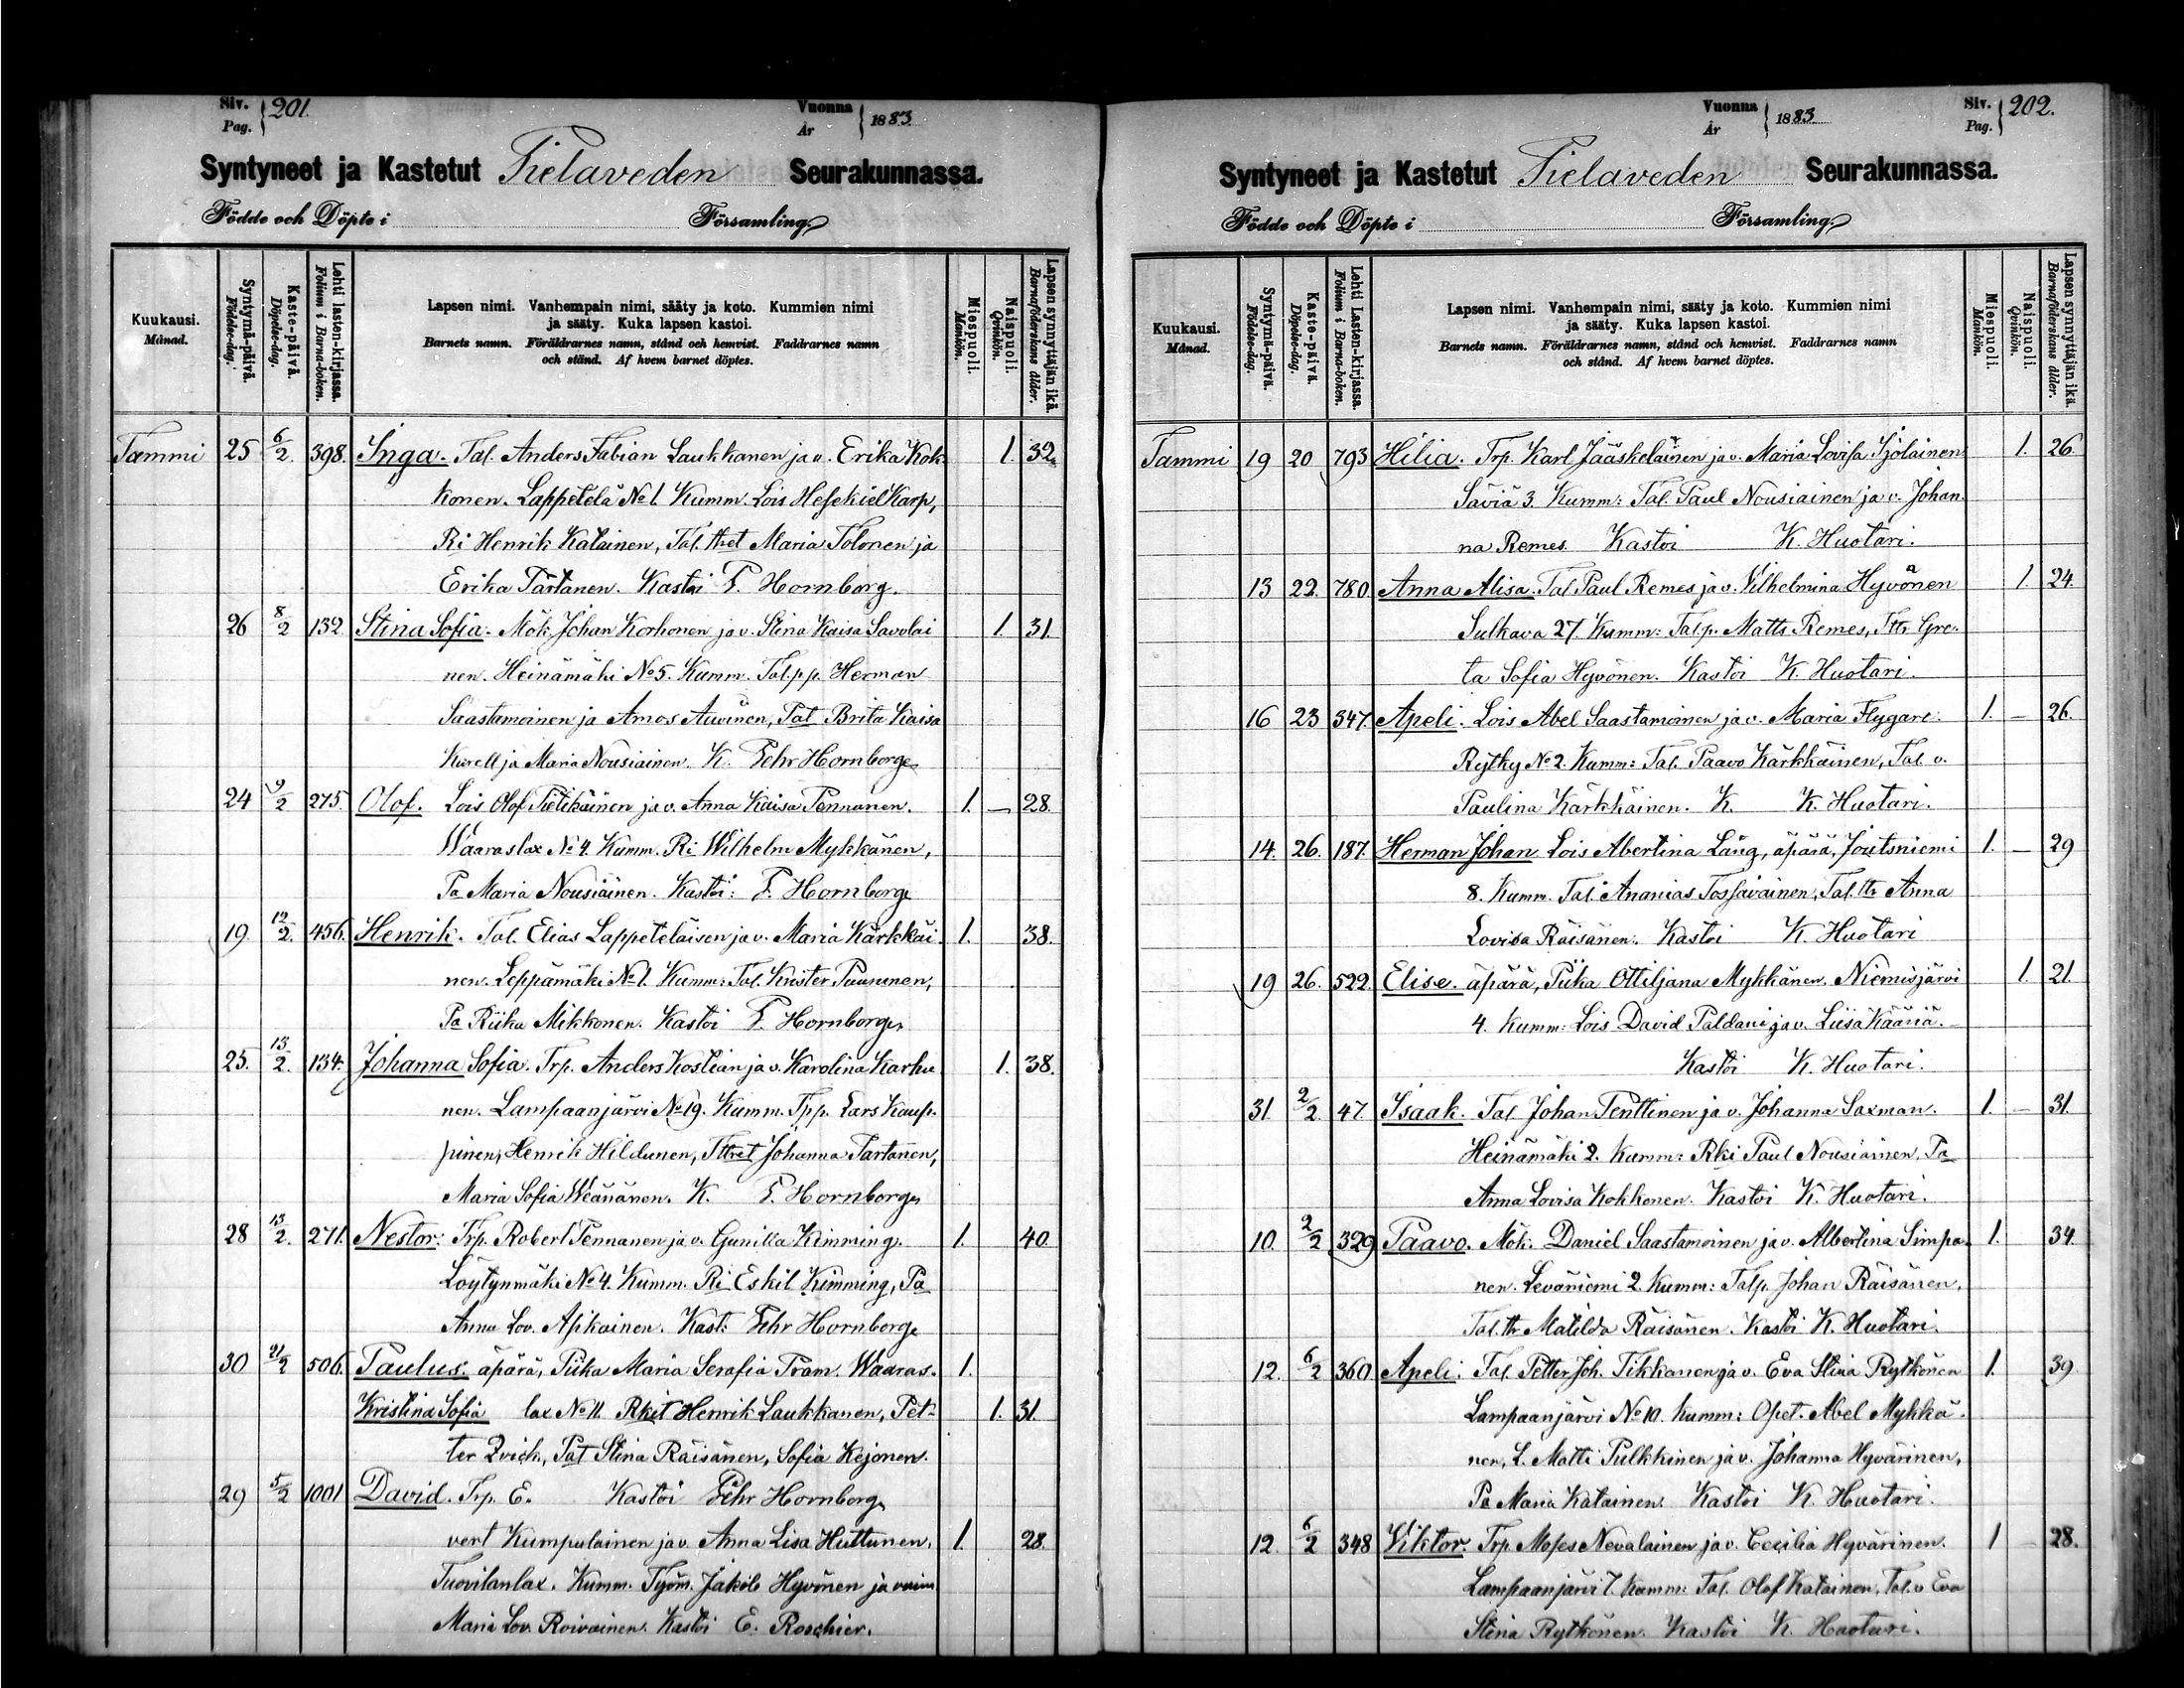 Siv. Pag. } 201. Vuonna År } 1883.
Syntyneet ja Kastetut Pielaveden Seurakunnassa.
Födde och Döpte i Församling.
Kuukausi. Månad.
Syntymä-päivä. Födelse-dag.
Kaste-päivä. Döpelse-dag.
Lehti lasten-kirjassa. Folium i Barna-boken.
Lapsen nimi. Vanhempain nimi, sääty ja koto. Kummien nimi
ja sääty. Kuka lapsen kastoi.
Barnets namn. Föräldrarnes namn, stånd och hemvist. Faddrarnes namn
och stånd. Af hvem barnet döptes.
Miespuoli. Mankön.
Naispuoli. Qvinkön.
Lapsen synnyttäjän ikä. Barnaföderskans ålder.
Tammi 25 6/2. 398. Inga. Tal. Anders Fabian Laukkanen ja v. Erika Kok- 1. 32.
konen. Lappetelä No 1. Kumm. Lois Hesekiel Karp,
Ri Henrik Katainen, Tal. ttret Maria Tolonen ja
Erika Tärtanen. Kastoi F. Hornborg.
26 8/2 132 Stina Sofia. Mök. Johan Korhonen ja v. Stina Kaisa Savolai 1. 31.
nen. Heinämäki No 5. Kumm. Tal. pp. Herman
Saastamoinen ja Amos Auvinen, Tat Brita Kaisa
Kurell ja Maria Nousiainen. K. Fehr Hornborg
24 9/2 275. Olof. Lois Olof Pietikäinen ja v. Anna Kaisa Pennanen. 1. — 28.
Waaraslax No 4. Kumm. Ri Wilhelm Mykkänen,
Pa Maria Nousiainen. Kastoi: F. Hornborg
19. 12/2. 456. Henrik. Tal. Elias Lappeteläisen ja v. Maria Kärkkäi 1. 38.
nen. Leppämäki No 1. Kumm: Tal. Krister Puusunen,
Pa Riika Mikkonen. Kastoi F. Hornborg.
25. 13/2. 134. Johanna Sofia. Trp. Anders Kostian ja v. Karolina Karhu 1. 38.
nen. Lampaanjärvi No 19. Kumm. Tpp. Lars Kaup-
pinen, Henrik Hildunen, Tttret Johanna Tartanen,
Maria Sofia Weänänen. K. F. Hornborg
28 13/2. 271. Nestor: Trp. Robert Pennanen ja v. Gunilla Kimming. 1. 40.
Löytynmäki No 4. Kumm. Ri Eskil Kimming, Pa
Anna Lov. Apkainen. Kast: Fehr Hornborg
30 21/2 506. Paulus. äpärä, Piika Maria Serafia Pram. Waaras- 1.
Kristina Sofia lax No 11. Rkit Henrik Laukkanen, Pet- 1. 31.
ter Qvick, Pat Stina Räisänen, Sofia Kejonen.
29 5/2 1001 David. Trp. E. Kastoi Fehr Hornborg
vert Kumpulainen ja v. Anna Lisa Huttunen. 1. 28.
Tuovilanlax. Kumm. Työm. Jakob Hyvönen ja vaim
Maria Lov. Roivainen. Kastoi E. Roschier.
Vuonna År } 1883. Siv. Pag. } 202.
Syntyneet ja Kastetut Pielaveden Seurakunnassa.
Födde och Döpte i Församling.
Kuukausi. Månad.
Syntymä-päivä. Födelse-dag.
Kaste-päivä. Döpelse-dag.
Lehti Lasten-kirjassa. Folium i Barna-boken.
Lapsen nimi. Vanhempain nimi, sääty ja koto. Kummien nimi
ja sääty. Kuka lapsen kastoi.
Barnets namn. Föräldrarnes namn, stånd och hemvist. Faddrarnes namn
och stånd. Af hvem barnet döptes.
Miespuoli. Mankön.
Naispuoli. Qvinkön.
Lapsen synnyttäjän ikä. Barnaföderskans ålder.
Tammi 19 20 793 Hilia. Trp. Karl Jääskeläinen ja v. Maria Lovisa Sjölainen 1. 26.
Säviä 3. Kumm: Tal. Paul Nousiainen ja v. Johan-
na Remes. Kastoi K. Huotari.
13 22. 780. Anna Alisa. Tal. Paul Remes ja v. Vilhelmina Hyvönen 1. 24.
Sulkava 27. Kumm: Tal. p. Matts Remes, Ttr. Gre-
ta Sofia Hyvönen. Kastoi K. Huotari.
16 23 347. Apeli. Lois Abel Saastamoinen ja v. Maria Flygare. 1. — 26.
Rytky No 2. Kumm: Tal. Paavo Kärkkäinen, Tal. v.
Paulina Kärkkäinen. K. K. Huotari.
14. 26. 187. Herman Johan. Lois Abertina Läng, äpärä, Joutsniemi 1. — 29
8. Kumm. Tal. Ananias Tossavainen, Tal. ttr Anna
Lovisa Räisänen. Kastoi K. Huotari
19 26. 522. Elise. äpärä, Piika Ottiljana Mykkänen. Niemisjärvi 1. 21.
4. Kumm: Lois David Paldani ja v. Liisa Kääriä.
Kastoi K. Huotari.
31. 2/2. 47. Isaak. Tal. Johan Penttinen ja v. Johanna Saxman. 1. — 31.
Heinämäki 2. Kumm: Rki Paul Nousiainen, Pa
Anna Lovisa Kokkonen. Kastoi K. Huotari.
10. 2/2 329 Paavo. Mök. Daniel Saastamoinen ja v. Albertina Simpa- 1. 34.
nen. Leväniemi 2. Kumm: Talp. Johan Räisänen,
Tal. ttr Matilda Räisänen. Kastoi K. Huotari.
12. 6/2 360. Apeli. Tal. Petter Joh. Tikkanen ja v. Eva Stina Rytkönen 1. 39.
Lampaanjärvi No 10. Kumm: Opet. Abel Mykkä-
nen, L. Matti Pulkkinen ja v. Johanna Hyvärinen,
Pa Maria Katainen. Kastoi K. Huotari.
12. 6/2 348 Viktor. Trp. Moses Nevalainen ja v. Cecilia Hyvärinen. 1 — 28.
Lampaanjärvi 7. Kumm: Tal. Olof Katainen, Tal. v Eva
Stina Rytkönen. Kastoi K. Huotari.